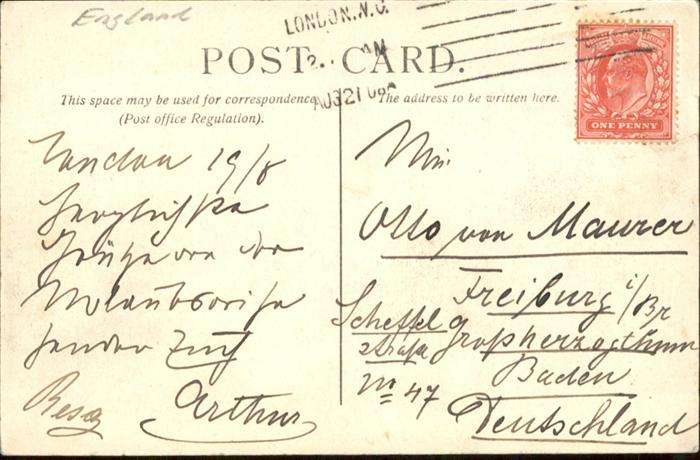 England
LONDON.W.C.
AM
AU 21 0
POST CARD.
This space may be used for correspondence
(Post office Regulation).
The address to be written here.
ONE PENNY
London 19/8
Herzlichste
Grüße von der
Urlaubsreise
senden Euch
Arthur
Otto von Maurer
Freiburg i/Br
Scheffel
straße
No 47
Großherzogthum
Baden
Deutschland